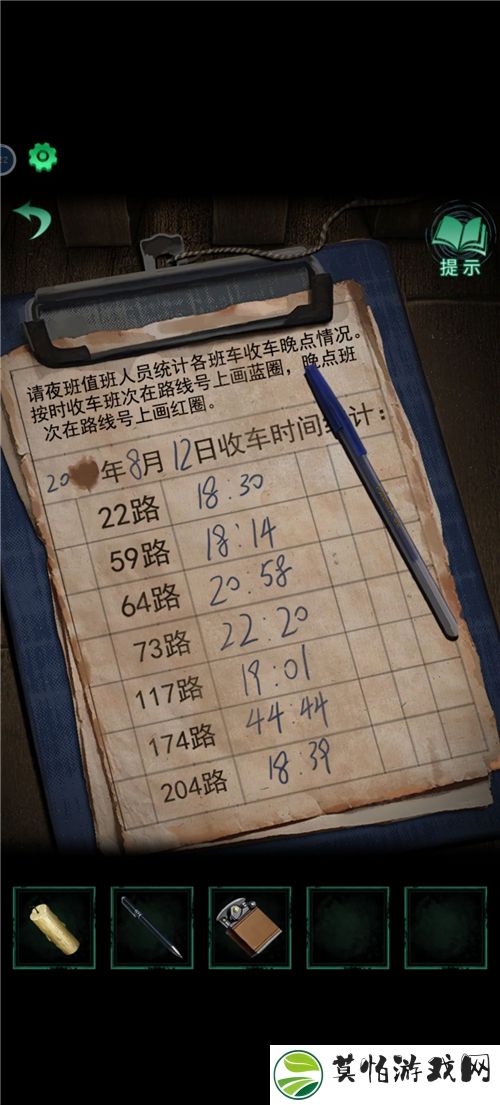 提示
请夜班值班人员统计各班车收车晚点情况。
按时收车班次在路线号上画蓝圈，晚点班
次在路线号上画红圈。
20 年8月12日收车时间统计：
22路 18:30
59路 18:14
64路 20:58
73路 22:20
117路 19:01
174路 44:44
204路 18:39
莫怕游戏网